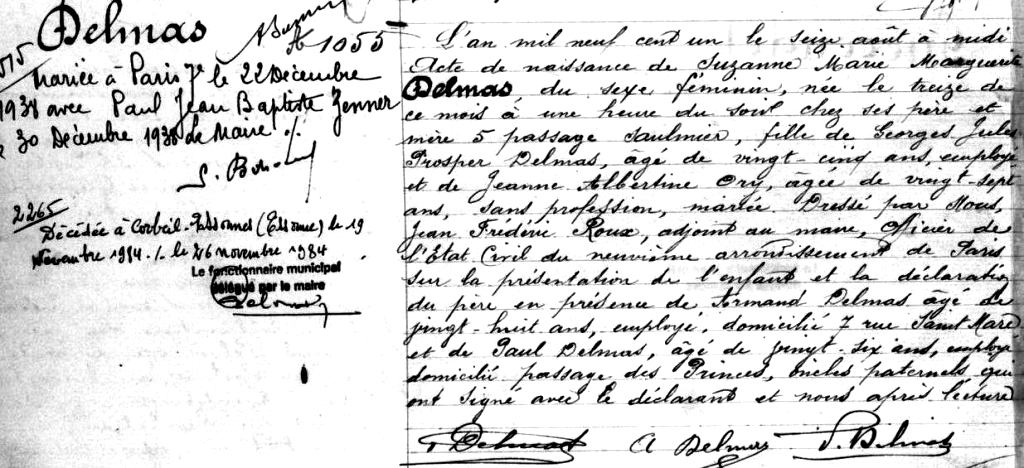 Delmas
1055
Mariée à Paris 7e le 22 Décembre
1938 avec Paul Jean Baptiste Zenner
30 Décembre 1938 Le Maire ./.
2265
Décédée à Corbeil-Essonnes (Essonne) le 19
Novembre 1984 ./. le 26 novembre 1984
Le fonctionnaire municipal
délégué par le maire
L'an mil neuf cent un le seize août à midi
Acte de naissance de Suzanne Marie Marguerite
Delmas du sexe féminin, née le treize de
ce mois à une heure du soir chez ses père et
mère 5 passage Saulnier, fille de Georges Jules
Prosper Delmas, âgé de vingt-cinq ans, employé
et de Jeanne Albertine Ory, âgée de vingt-sept
ans, sans profession, mariée. Dressé par Nous,
Jean Frédéric Roux, adjoint au maire, Officier de
l'Etat Civil du neuvième arrondissement de Paris
sur la présentation de l'enfant et la déclaration
du père en présence de Armand Delmas âgé de
vingt-huit ans, employé, domicilié 7 rue Saint Marc
et de Paul Delmas, âgé de vingt-six ans, employé
domicilié passage des Princes, oncles paternels qui
ont signé avec le déclarant et nous après lecture
Delmas A Delmas P. Delmas